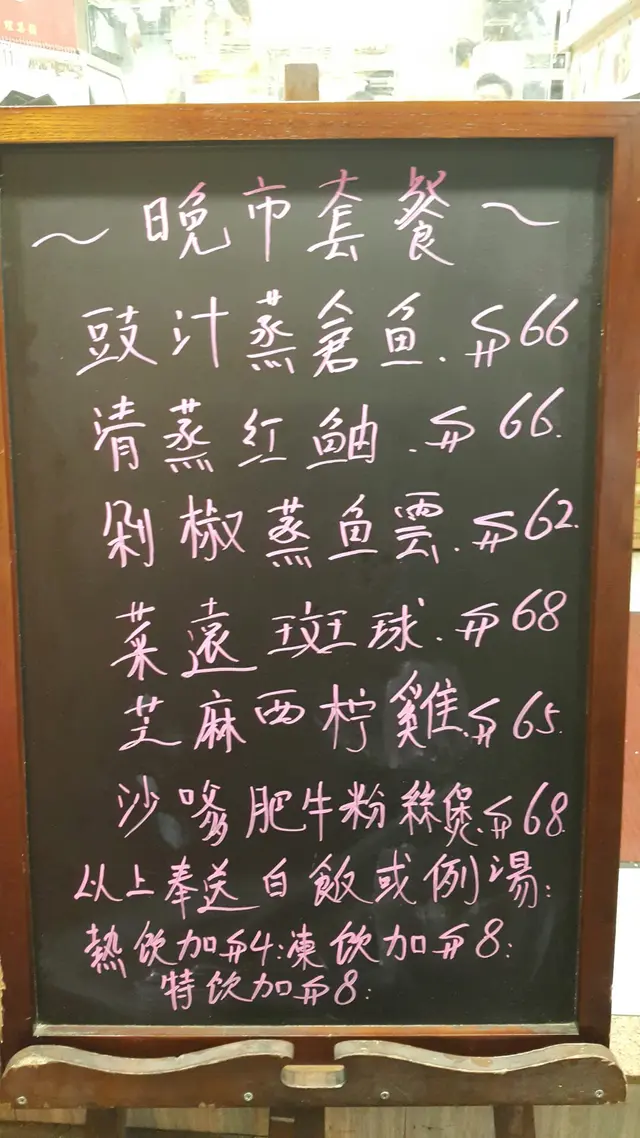 ~晚市套餐~
豉汁蒸倉魚.$66
清蒸紅鮋.$66.
剁椒蒸魚雲.$62.
菜遠斑球.$68
芝麻西柠雞.$65.
沙嗲肥牛粉絲煲.$68.
以上奉送白飯或例湯:
熱飲加$4:凍飲加$8:
特饮加$8: